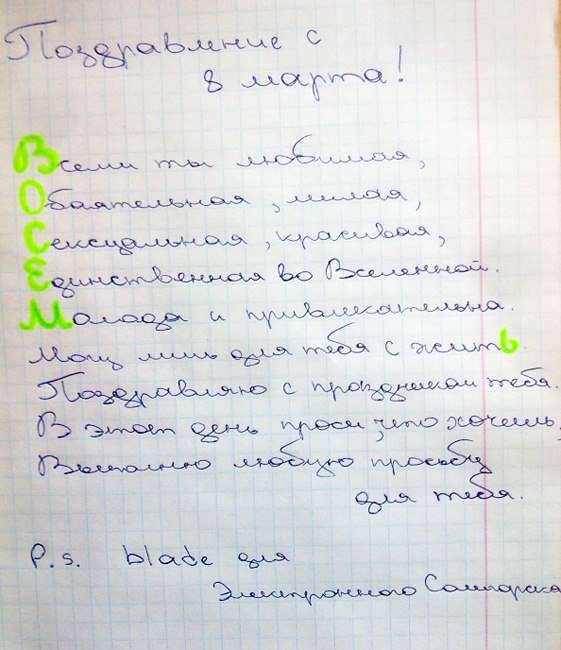 Поздравление с
8 марта!
Всеми ты любимая,
Обаятельная, милая,
Сексуальная, красивая,
Единственная во Вселенной.
Молода и привлекательна.
Могу лишь для тебя с жить.
Поздравляю с праздником тебя.
В этот день проси, что хочешь,
Выполню любую просьбу
для тебя.
P.s. blade для
Электронного Самарска